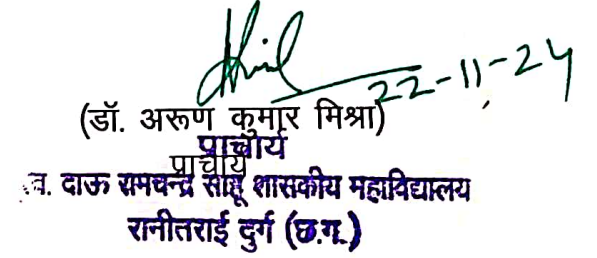 22-11-24
(डॉ. अरूण कुमार मिश्रा)
प्राचार्य
प्राचार्य
स्व. दाऊ रामचन्द्र साहू शासकीय महाविद्यालय
रानीतराई दुर्ग (छ.ग.)